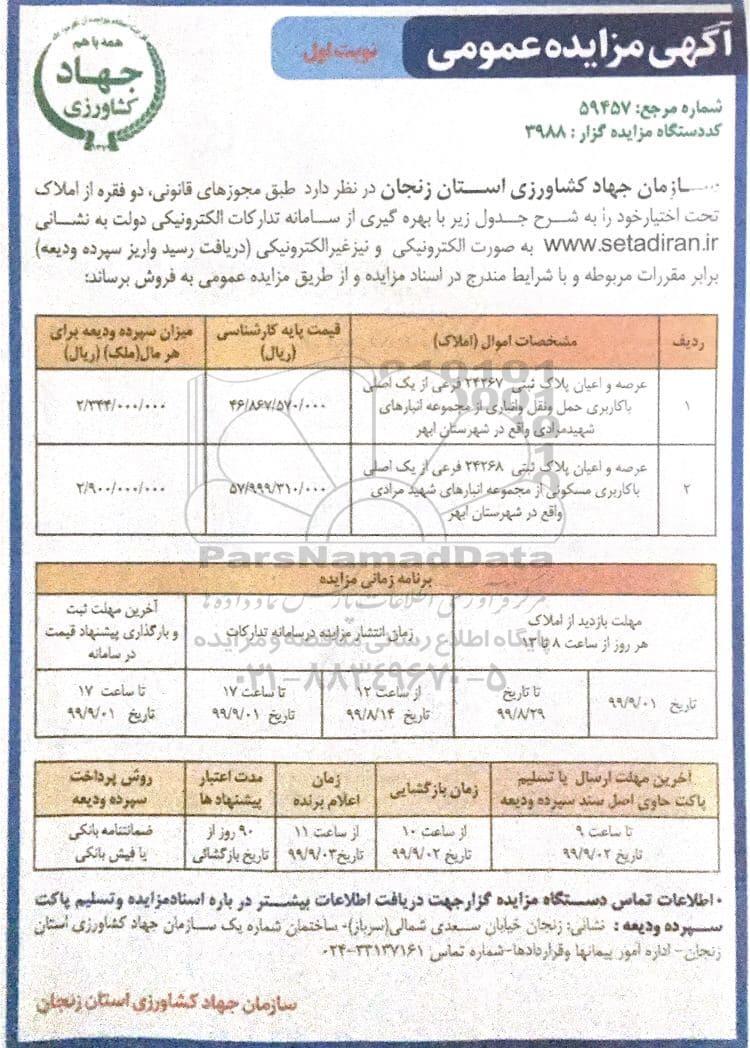 آگهی مزایده عمومی
نوبت اول
همه با هم
جهاد
کشاورزی
شماره مرجع: ۵۹۴۵۷
کددستگاه مزایده گزار : ۳۹۸۸
سازمان جهاد کشاورزی استان زنجان در نظر دارد طبق مجوزهای قانونی، دو فقره از املاک
تحت اختیارخود را به شرح جدول زیر با بهره گیری از سامانه تدارکات الکترونیکی دولت به نشانی
www.setadiran.ir به صورت الکترونیکی و نیزغیرالکترونیکی (دریافت رسید واریز سپرده ودیعه)
برابر مقررات مربوطه و با شرایط مندرج در اسناد مزایده و از طریق مزایده عمومی به فروش برساند:
ردیف
مشخصات اموال (املاک)
قیمت پایه کارشناسی
(ریال)
میزان سپرده ودیعه برای
هر مال(ملک) (ریال)
۱
عرصه و اعیان پلاک ثبتی ۲۴۲۶۷ فرعی از یک اصلی
باکاربری حمل ونقل وانباری از مجموعه انبارهای
شهیدمرادی واقع در شهرستان ابهر
۴۶/۸۶۷/۵۷۰/۰۰۰
۲/۳۴۴/۰۰۰/۰۰۰
۲
عرصه و اعیان پلاک ثبتی ۲۴۲۶۸ فرعی از یک اصلی
باکاربری مسکونی از مجموعه انبارهای شهید مرادی
واقع در شهرستان ابهر
۵۷/۹۹۹/۳۱۰/۰۰۰
۲/۹۰۰/۰۰۰/۰۰۰
ParsNamadData
پایگاه اطلاع رسانی مناقصه و مزایده
۰۲۱-۸۸۳۴۹۶۷۰-۵
برنامه زمانی مزایده
مهلت بازدید از املاک
هر روز از ساعت ۸ تا ۱۳
زمان انتشار مزایده درسامانه تدارکات
آخرین مهلت ثبت
و بارگذاری پیشنهاد قیمت
در سامانه
تاریخ ۹۹/۹/۰۱
تا تاریخ
۹۹/۸/۲۹
از ساعت ۱۲
تاریخ ۹۹/۸/۱۴
تا ساعت ۱۷
تاریخ ۹۹/۹/۰۱
تا ساعت ۱۷
تاریخ ۹۹/۹/۰۱
آخرین مهلت ارسال یا تسلیم
پاکت حاوی اصل سند سپرده ودیعه
زمان بازگشایی
زمان
اعلام برنده
مدت اعتبار
پیشنهاد ها
روش پرداخت
سپرده ودیعه
تا ساعت ۹
تاریخ ۹۹/۹/۰۲
از ساعت ۱۰
تاریخ ۹۹/۹/۰۲
از ساعت ۱۱
تاریخ۹۹/۹/۰۳
۹۰ روز از
تاریخ بازگشائی
ضمانتنامه بانکی
یا فیش بانکی
• اطلاعات تماس دستگاه مزایده گزارجهت دریافت اطلاعات بیشتر در باره اسنادمزایده وتسلیم پاکت
سپرده ودیعه : نشانی: زنجان خیابان سعدی شمالی(سرباز)- ساختمان شماره یک سازمان جهاد کشاورزی استان
زنجان- اداره امور پیمانها وقراردادها-شماره تماس ۳۳۱۳۷۱۶۱-۰۲۴
سازمان جهاد کشاورزی استان زنجان